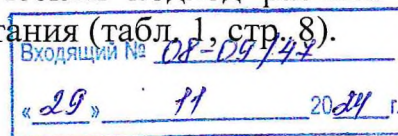 тания (табл. 1, стр. 8).
Входящий № 08-09/47
« 29 » 11 2024 г.